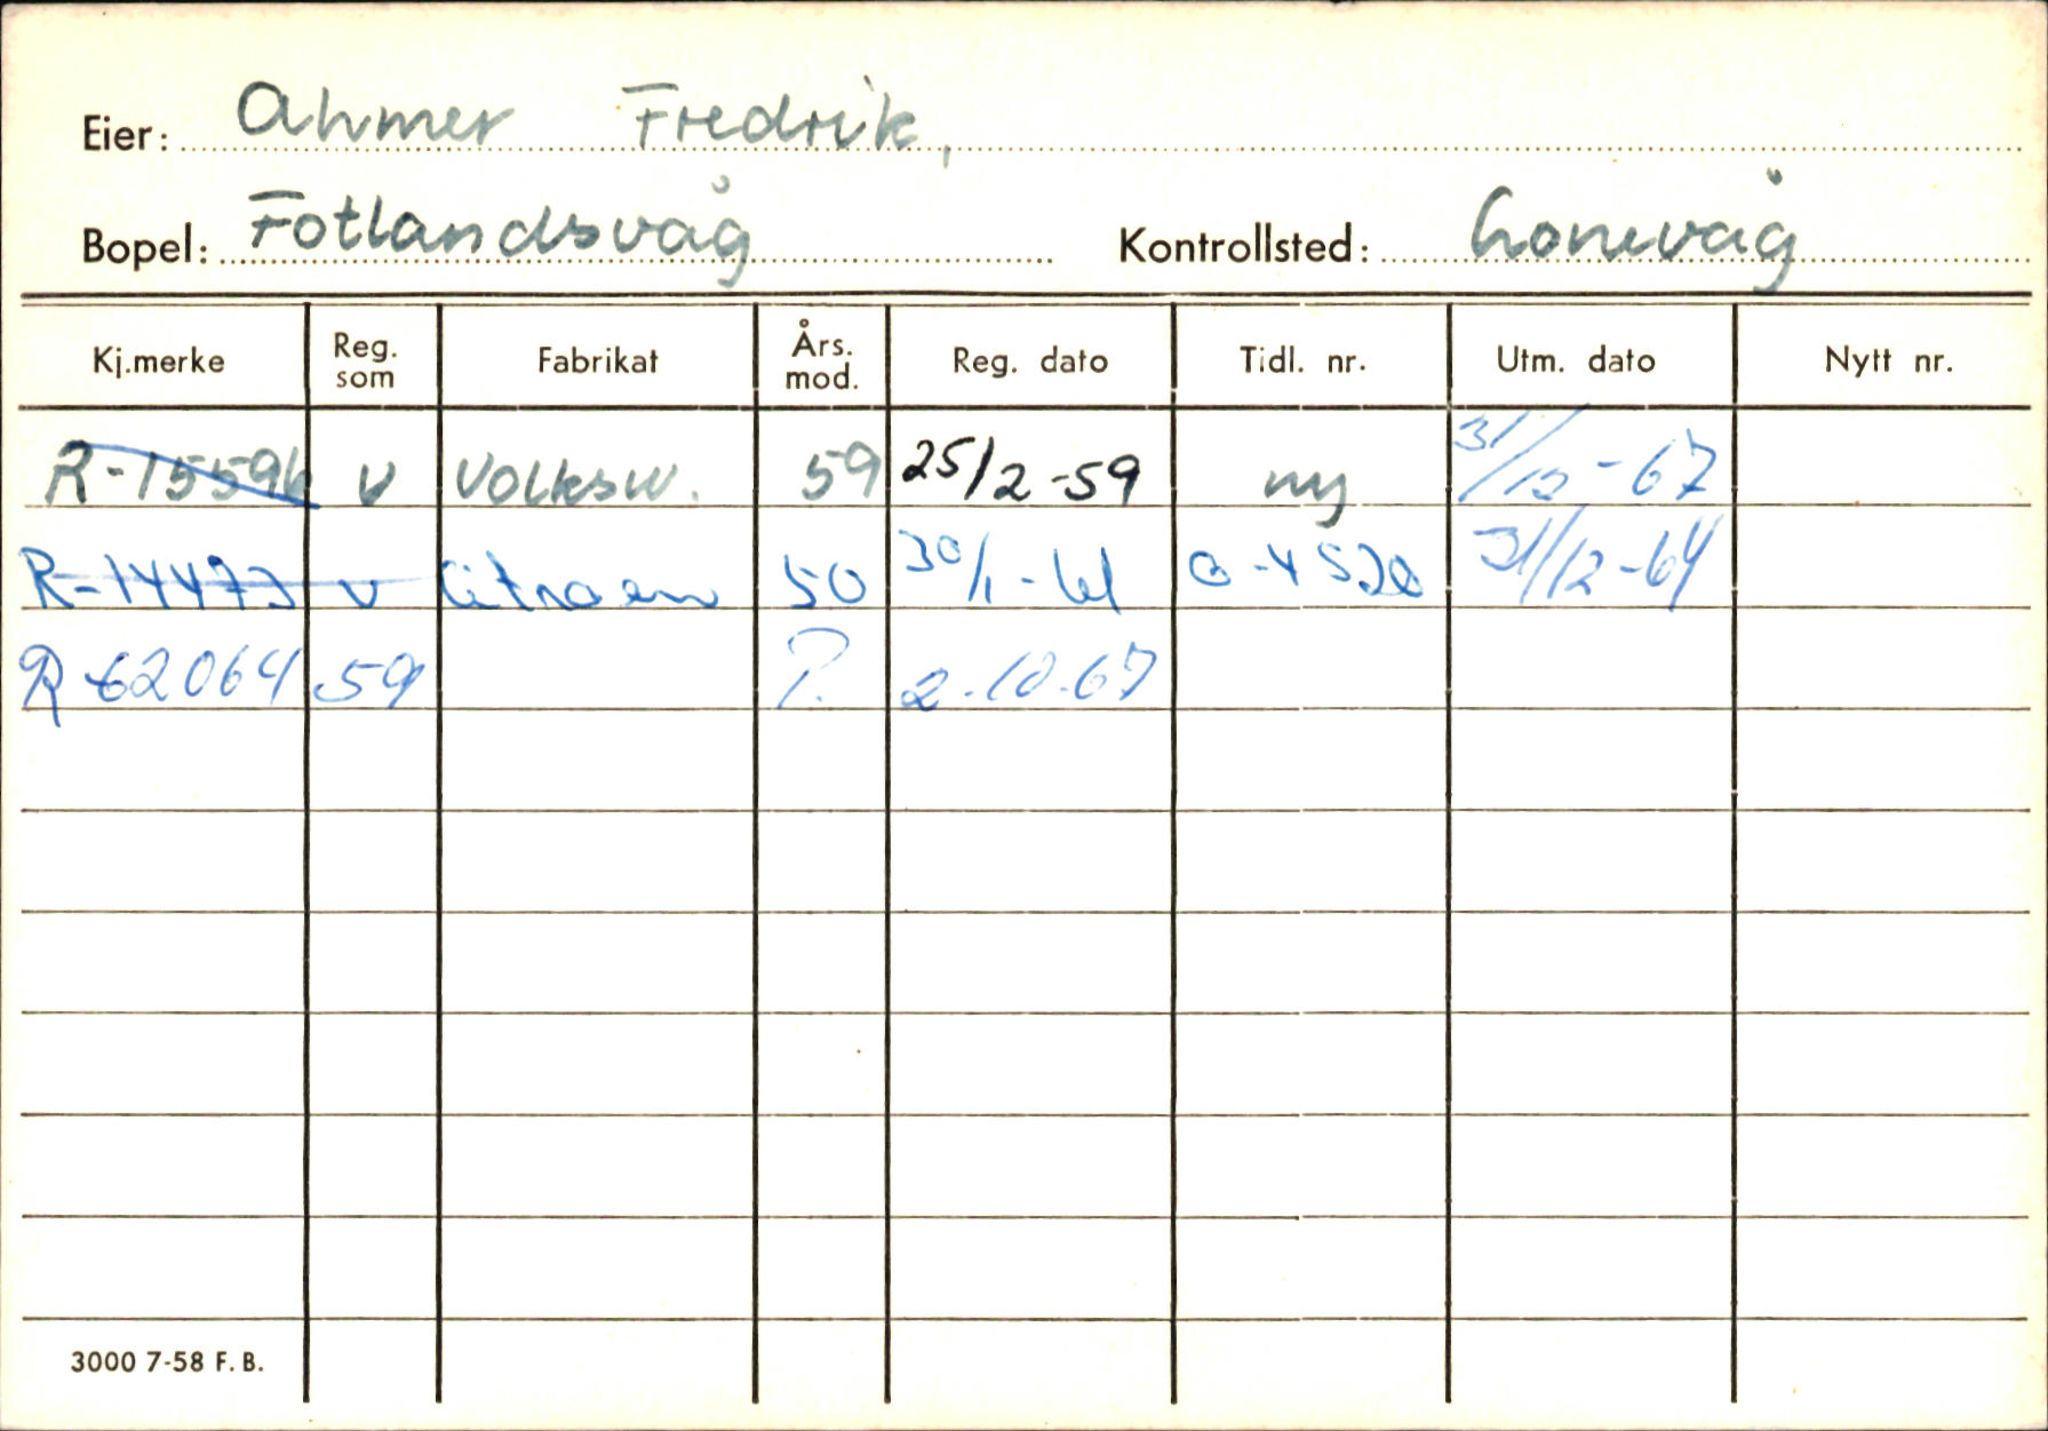 Eier: Ahmer Fredrik,
Bopel: Fotlandsvåg Kontrollsted: Lonevåg
Kj.merke Reg. som Fabrikat Års. mod. Reg. dato Tidl. nr. Utm. dato Nytt nr.
R-15596 v Volksw. 59 25/2-59 ny 31/12-67
R-14473 v Citroen 50 30/1-61 31/12-64
R-62064 59 P. 2.10.67
3000 7-58 F. B.